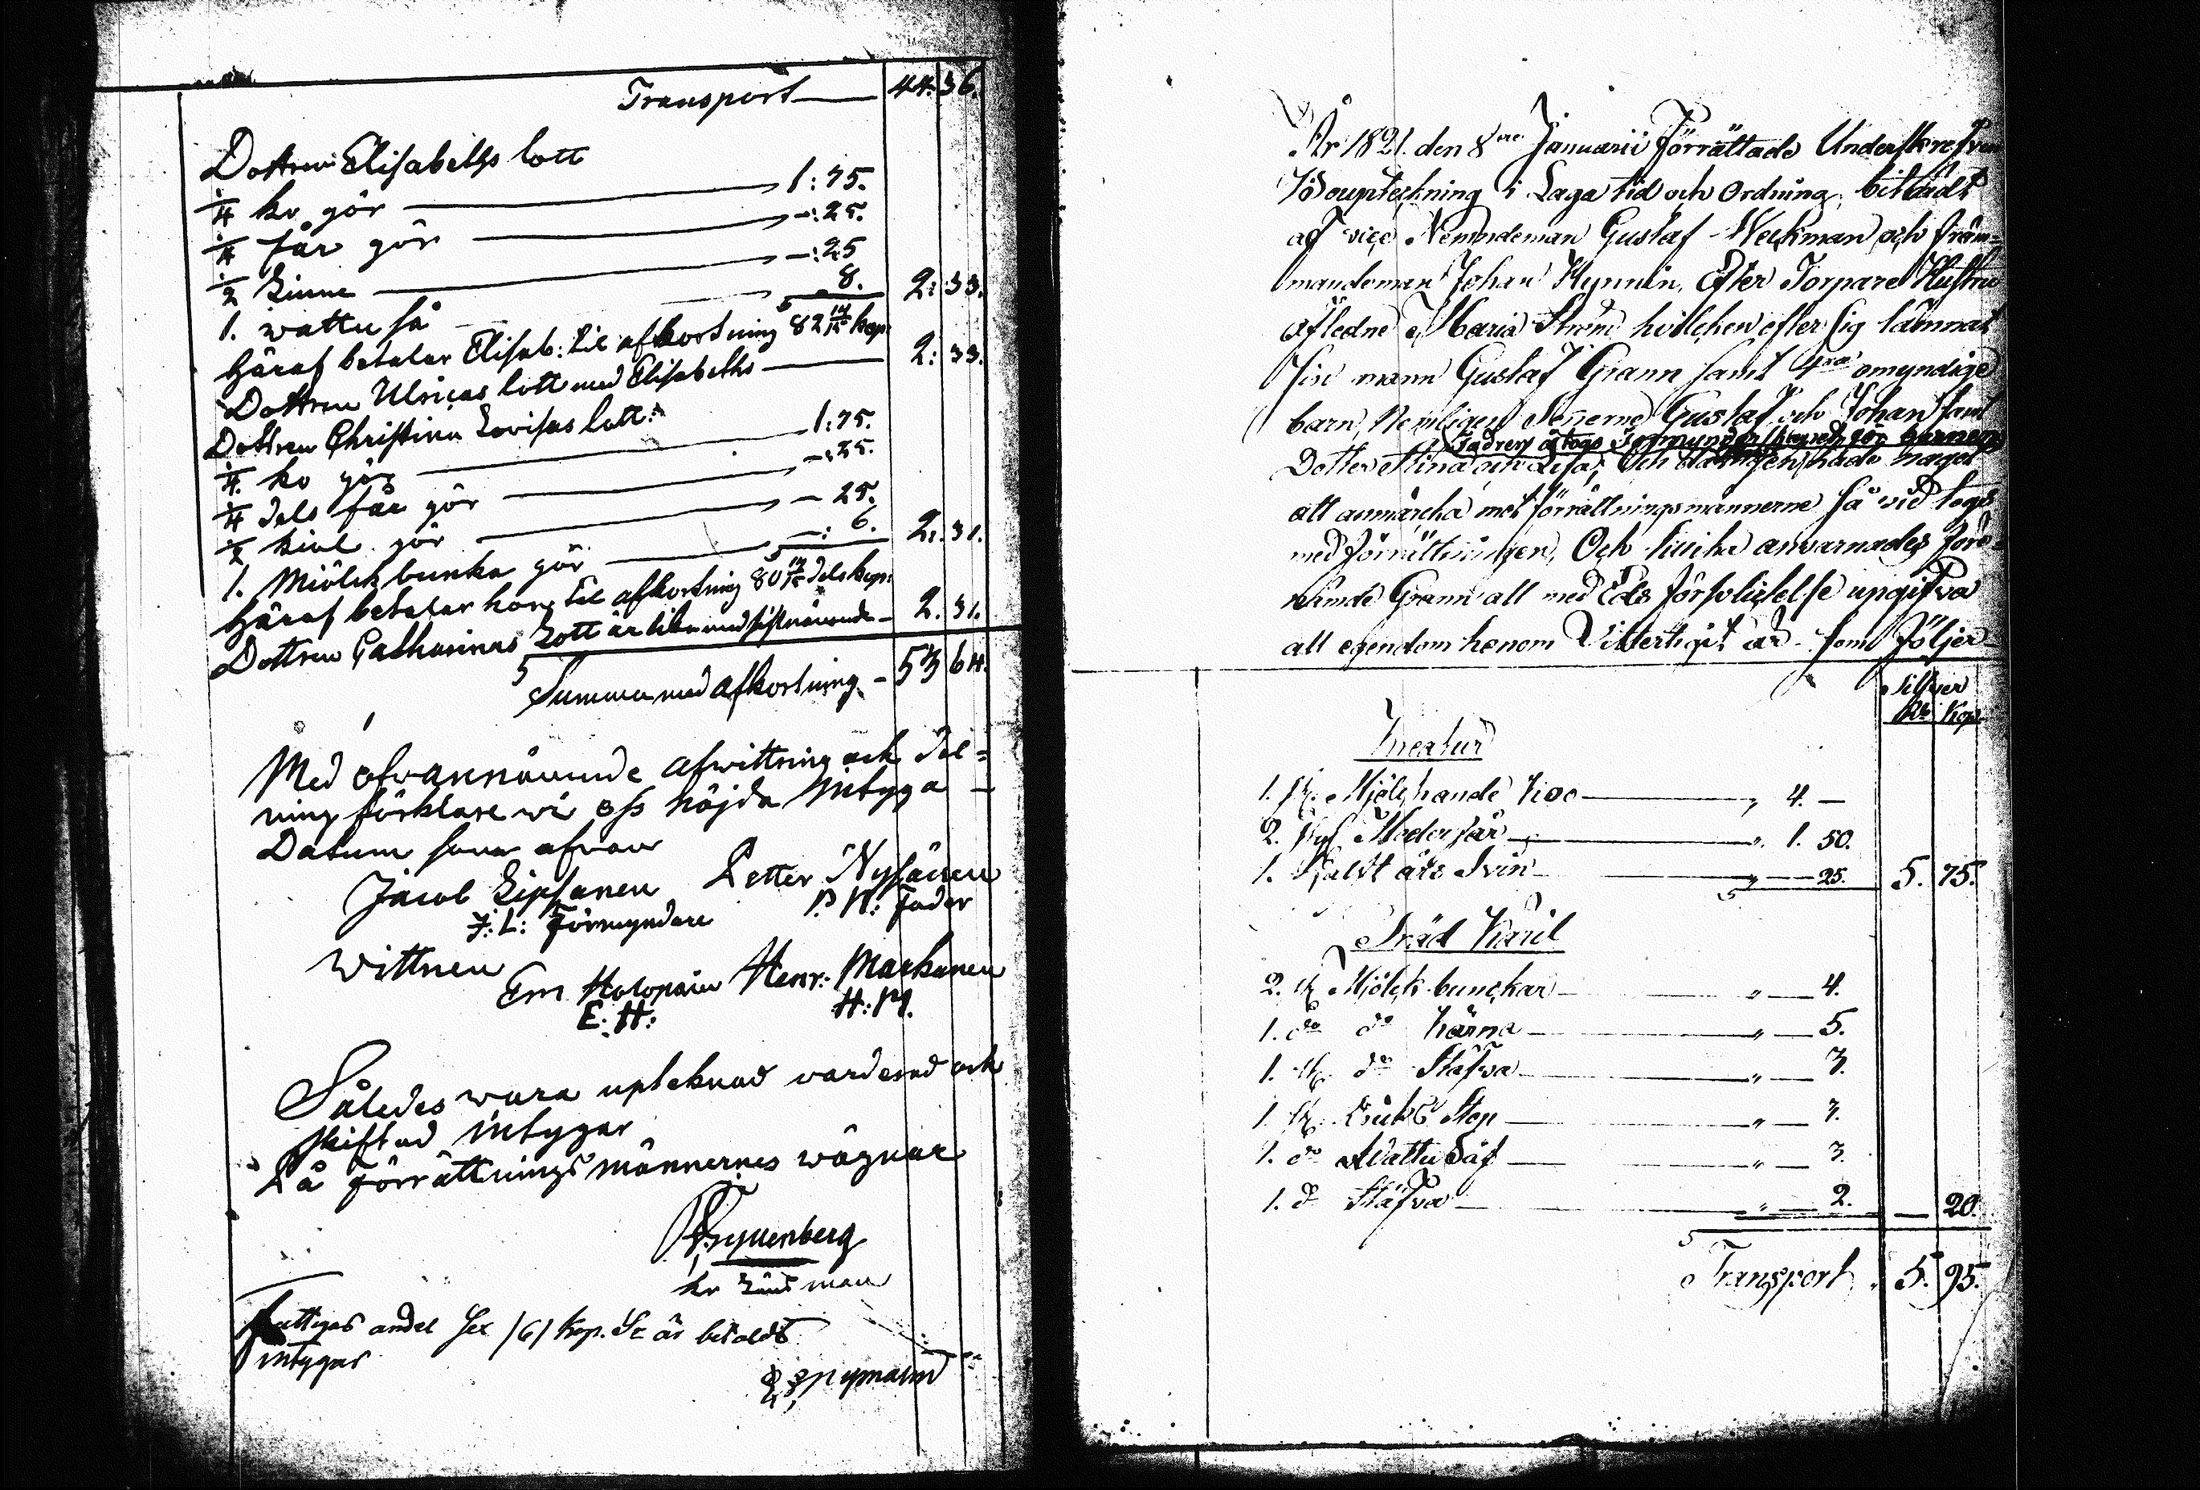 Transport 44: 36.
Dottren Elisabeths lott
1/4 ko gör 1:75.
1/4 får gör -:25.
1/2 -:25
1. wattu så 8. 2: 33.
häraf betalar Elisab: til afkortning 82 14/15 kop:
Dottren Ulricas lott med Elisabeths 2: 33.
Dottren Christina Lovisas lott:
1/4 ko gör 1:75.
1/4 dels får gör -:25.
1/2 gör - 25.
1. Miölck bunka gör -: 6. 2: 31.
häraf betalar hon til afkortning 80 14/15 dels kop:
Dottren Catharinas Lott är lika med sistnämnde 2. 31.
Summa med afkortning - 53 64.
Med ofvannämnde afwittring och del=
ning förklare wi oss nöjda intyga
Datum som ofvan
Jacob Lipsanen Petter Nysänen
J: L: Förmyndare P. N: Fader
Wittnen
Em Holopain Henr: Markanen
E: H: H: M.
Således wara upteknad värderad och
skiftad intygar
På förrättnings männernes wägnar
kr Länsman
Fattigas andel sex /6/ kop. Sr är betaldt
intygar
Nymalm
År 1821. den 8de Januarii Förrättade Underskrefven
Bouptekning i Laga tid och Ordning, biträdt
af vice Nemndeman Gustaf Weckman och Näm=
mandeman Johan Hynnin, Efter Torpare Hustru
afledne Maria Ström hvilcken efter sig lämnat
sin mann Gustaf Grann samt 4ra omyndige
barn, Nemligen Sönerne Gustaf och Johan samt
Fadren åtogs Förmynderskapet för barnen
Dotter Stina och Lisa; Och hade något
att anmärcka mot förrättningsmännerne så vid togs
med förrättningen, Och Enckan anvarnades före-
nämde Grann att med Eds förplicktelse upgifva
all egendom honom Vitterligit är som följer
Silfver
Rb Kop
Kreatur
1. st. Mjölckande Koo " 4. —
2. st Moder får " 1. 50.
1. halft års Svin " — 25. 5. 75.
Träd Käril
2. st Mjölck bunckar " — 4.
1. do do kärna " — 5.
1. st. do Stäfva " — 3.
1. st. Stop " — 3.
1. do Wattu Såf " — 3.
1. do Stäfva " — 2. — 20.
Transport " 5. 95.